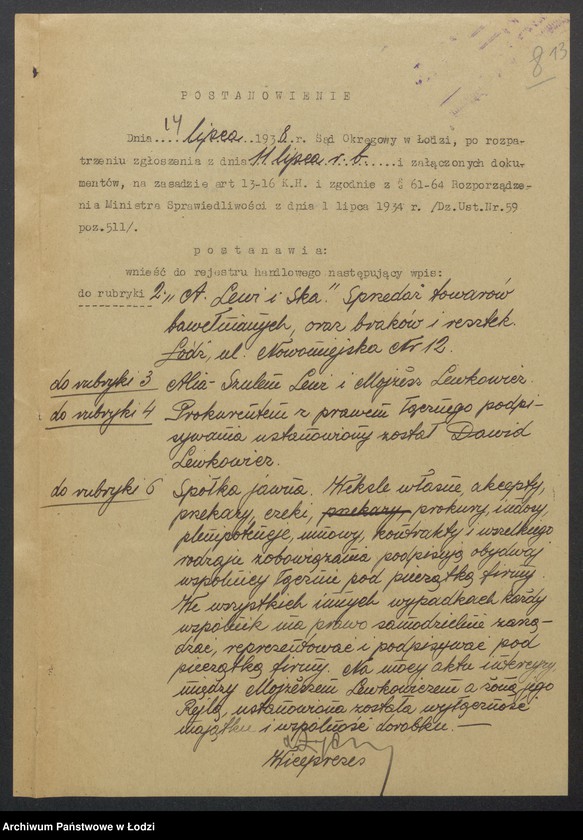 8 13
POSTANOWIENIE
Dnia....14 lipca..1938.r. Sąd Okręgowy w Łodzi, po rozpa-
trzeniu zgłoszenia z dnia 11 lipca r. b.....i załączonych doku-
mentów, na zasadzie art 13-16 K.H. i zgodnie z § 61-64 Rozporządze-
nia Ministra Sprawiedliwości z dnia 1 lipca 1934 r. /Dz.Ust.Nr.59
poz.511/.
postanawia:
wnieść do rejestru handlowego następujący wpis:
do rubryki 2. „A. Lewi i Ska." Sprzedaż towarów
bawełnianych, oraz braków i resztek.
Łódź, ul. Nowomiejska Nr 12.
do rubryki 3 Szulem Lewi i Mojżesz Lewkowicz.
do rubryki 4 Prokurentem z prawem łącznego podpi-
sywania ustanowiony został Dawid
Lewkowicz.
do rubryki 6 Spółka jawna. Weksle własne, akcepty,
przekazy, czeki, przekazy, prokury, indosy,
plenipotencje, umowy, kontrakty i wszelkiego
rodzaju zobowiązania podpisują obydwaj
wspólnicy łącznie pod pieczątką firmy.
We wszystkich innych wypadkach każdy
wspólnik ma prawo samodzielnie zarzą-
dzać, reprezentować i podpisywać pod
pieczątką firmy. Na mocy aktu intercyzy,
między Mojżeszem Lewkowiczem a żoną jego
Rejlą, ustanowiona została wyłączność
majątku i wspólność dorobku.—
Wiceprezes
Archiwum Państwowe w Łodzi